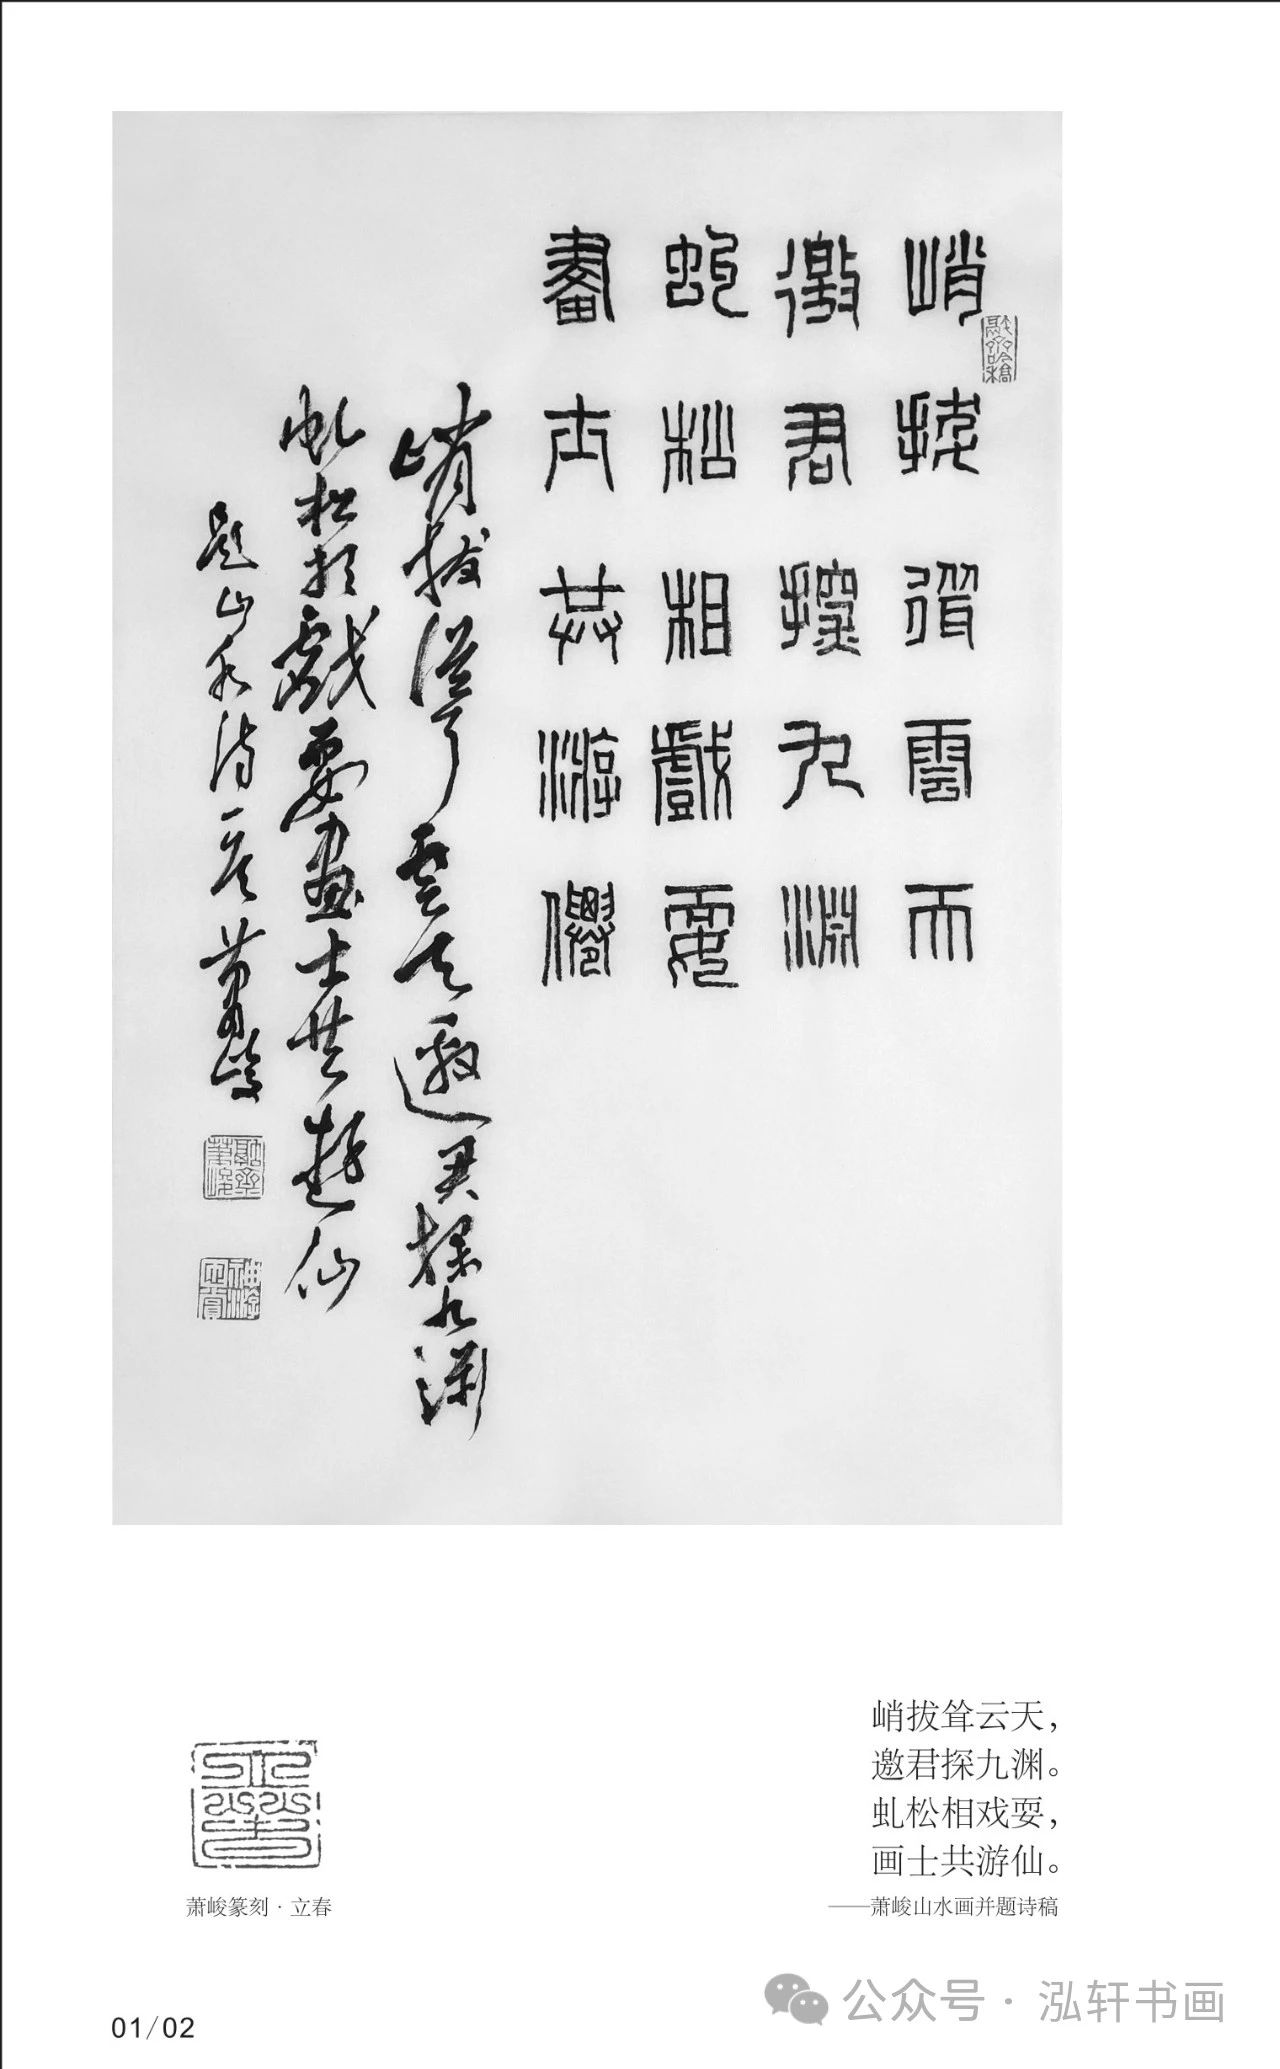 峭拔聳雲天
邀君探九淵
虬松相戲耍
畫士共游僊
峭拔聳雲天邀君探九淵
虬松相戲耍畫士共遊仙
題山水詩一首 蕭峻
峭拔耸云天，
邀君探九渊。
虬松相戏耍，
画士共游仙。
——萧峻山水画并题诗稿
萧峻篆刻·立春
公众号·泓轩书画
01/02